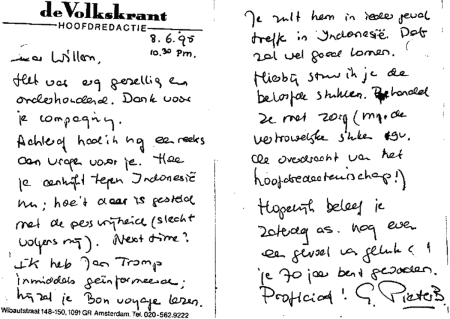 de Volkskrant
HOOFDREDACTIE
8.6.'95
10.30 pm.
Willem,
Het was erg gezellig en
onderhoudend. Dank voor
je compagny.
Achteraf had ik nog een reeks
aan vragen voor je. Hoe
je aankijkt tegen Indonesië
nu; hoe 't daar is gesteld
met de persvrijheid (slecht
volgens mij). Next time?
Ik heb Jan Tromp
inmiddels geïnformeerd;
hij zal je Bon voyage lezen.
Wibautstraat 148-150, 1091 GR Amsterdam. Tel. 020-562.9222
Je zult hem in ieder geval
treffen in Indonesië. Dat
zal wel goed komen.
Hierbij stuur ik je de
beloofde stukken. Behandel
ze met zorg (m.n. de
vertrouwelijke stukken
de overdracht van het
hoofdredacteurschap!)
Hopelijk beleef je
zaterdag as. nog even
een gevoel van geluk
je 70 jaar bent geworden.
Proficiat! Pieter B